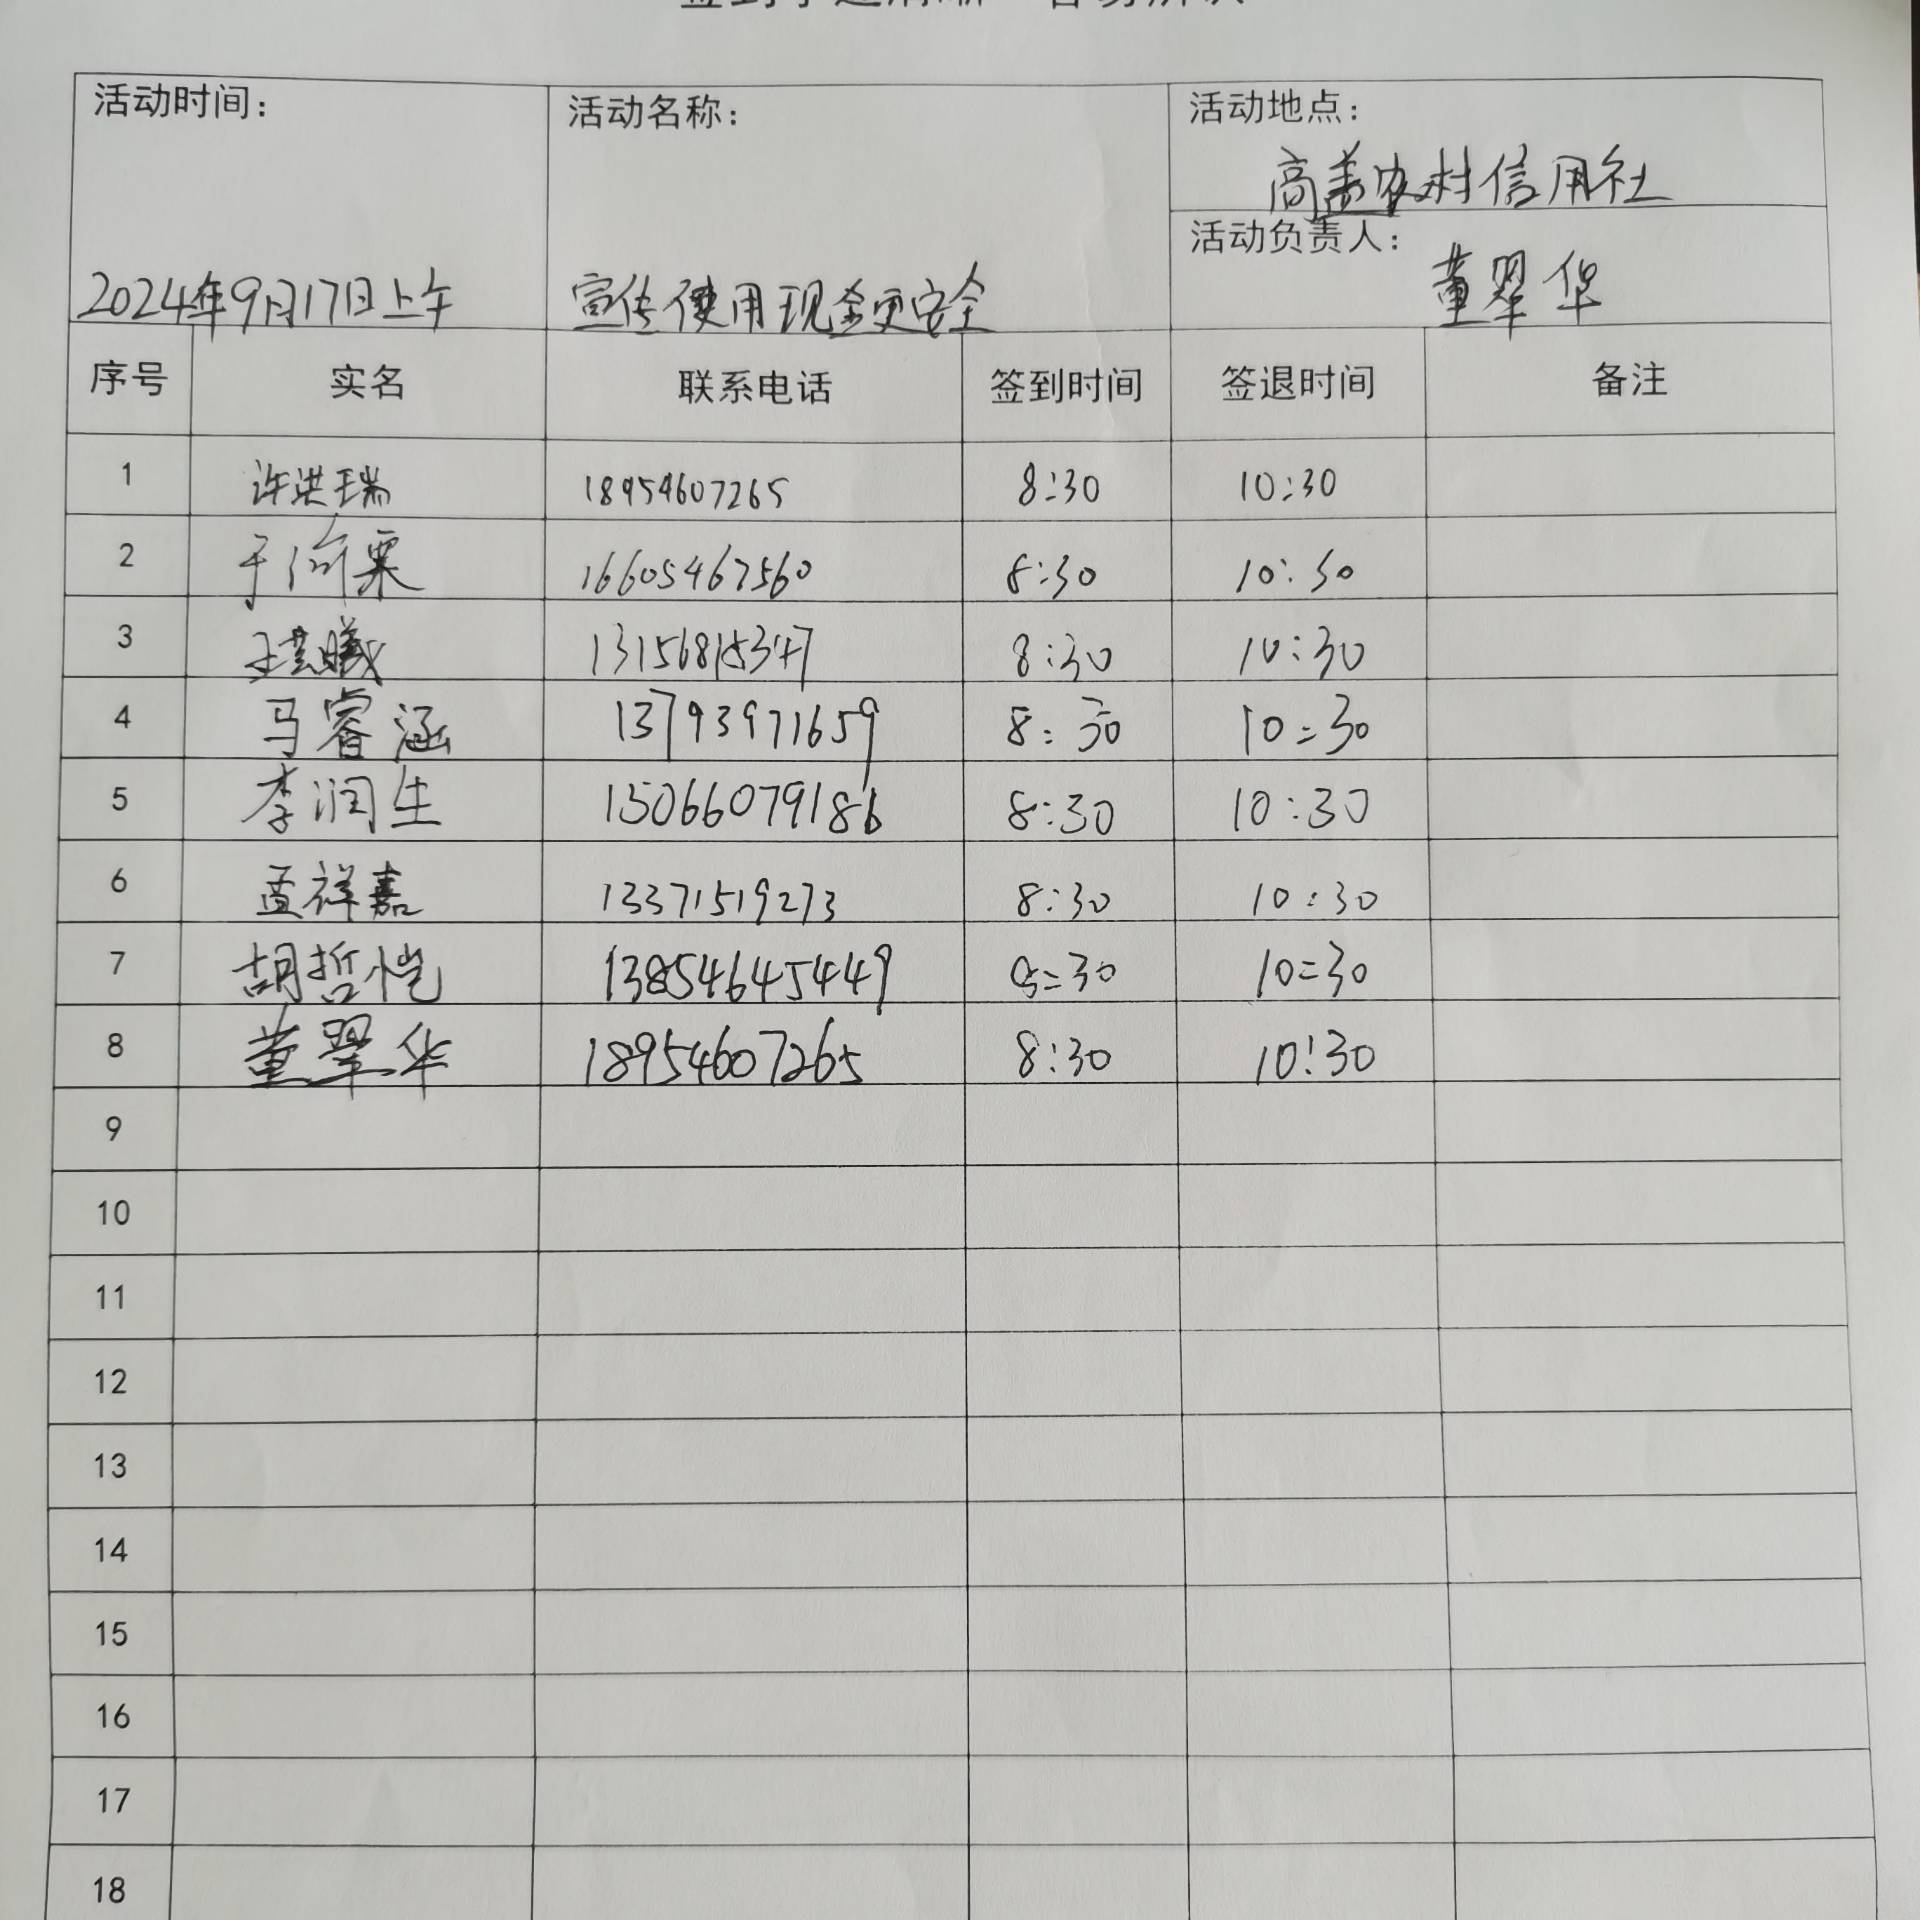 活动时间:
2024年9月17日上午
活动名称:
宣传使用现金更安全
活动地点:
高盖农村信用社
活动负责人:
董翠华
序号 实名 联系电话 签到时间 签退时间 备注
1 许洪瑞 18954607265 8:30 10:30
2 于向栗 16605467560 8:30 10:30
3 8:30 10:30
4 马睿涵 13793971659 8:30 10=30
5 李润生 15066079186 8:30 10:30
6 孟祥嘉 13371519273 8:30 10:30
7 胡哲恺 13854645449 8=30 10=30
8 董翠华 18954607265 8:30 10:30
9
10
11
12
13
14
15
16
17
18